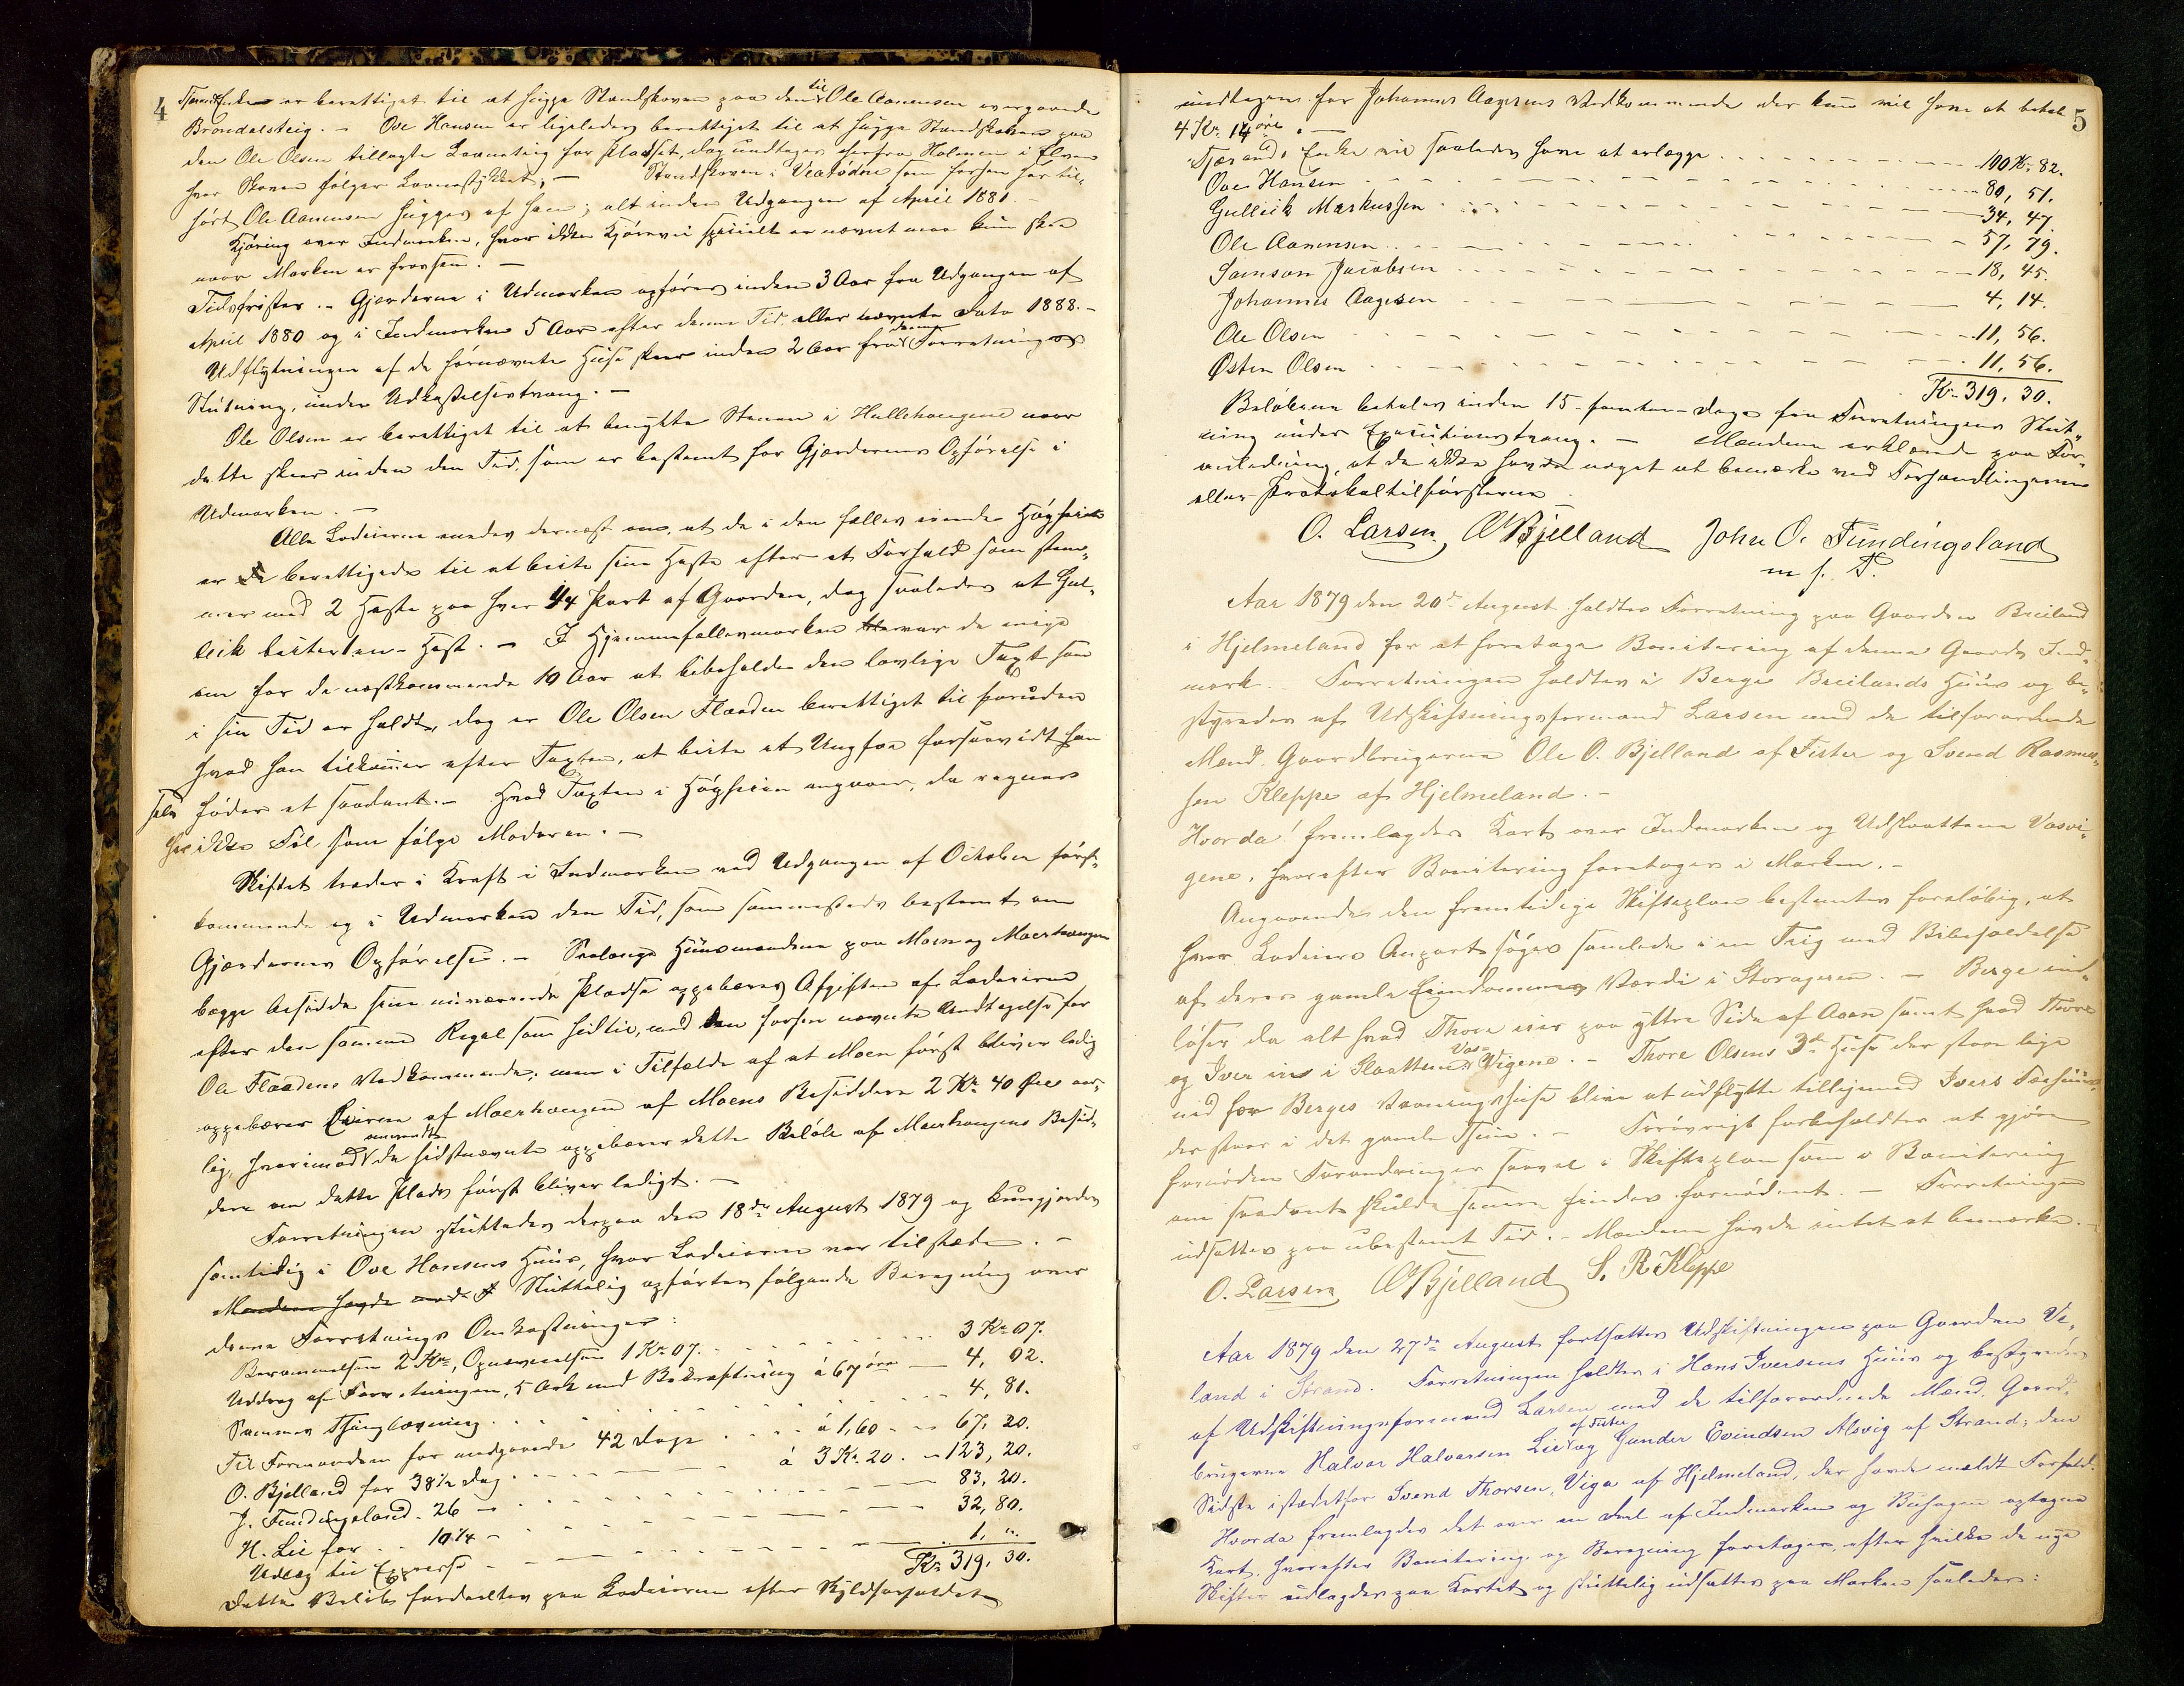 4
Tjærands Enke er berettiget til at hugge Standskoven paa den til Ole Aanensen overgaaende
Brøndalsteig. – Ove Hansen er ligeledes berettiget til at hugge Standskoven paa
den Ole Olsen tillagte Teig for Pladset, dog undtages herfra Holmen i Elven
hvor Skoven følger. – Standskoven i som forhen har til-
hørt Ole Aanensen hugges af ham; alt inden Udgangen af April 1881. –
Kjøring over Indmarken, hvor ikke Kjørevei specielt er nævnt maa kun skee
naar Marken er frossen. –
Tidsfrister. – Gjerderne i Udmarken opføres inden 3 Aar fra Udgangen af
April 1880 og i Indmarken 5 Aar efter denne Tid eller nævnte Dato 1888. –
Udflytningen af de førnævnte Huse skeer inden 2 Aar fra denne Forretnings
Slutning, under Udkastelsestvang. –
Ole Olsen er berettiget til at benytte Stenene i Hullehaugene naar
dette skeer inden den Tid, som er bestemt for Gjærdernes Opførelse i
Udmarken. –
Alle Lodeierne enedes dernæst om, at de i den fælles eiende Høghei
er de berettigede til at beite sine Heste efter et Forhold som stem-
mer med 2 Heste paa hver 1/4 Part af Gaarden, dog saaledes at Gul-
leik beiter een Hest. – I Hjemmefællesmarken blev de enige
om for de næstkommende 10 Aar at bibeholde den lovlige Taxt som
i sin Tid er holdt, dog er Ole Olsen Flaaden berettiget til foruden
hvad han tilkommer efter Taxten, at beite et Ungfæ forsaavidt han
selv føder et saadant. – Hvad Taxten i Høgheien angaaer, da regnes
her ikke Føl som følge Moderen. –
Skiftet træder i Kraft i Indmarken ved Udgangen af October først-
kommende og i Udmarken den Tid, som sammesteds bestemt om
Gjærdernes Opførelse. – Saalænge Huusmændene paa Moen og Moerhaugen
begge besidde sine nuværende Pladse oppebæres Afgiften af Lodeierne
efter den samme Regel som hidtil, med den forhen nævnte Undtagelse for
Ole Flaadens Vedkommende; men i Tilfælde af at Moen først bliver ledig
oppebærer Eieren af Moerhaugen af Moens Besiddere 2 Kr. 40 Øre aar-
lig, hvorimod omvendt de sidstnævnte oppebærer dette Beløb af Moerhaugens Besid-
dere om dette Plads først bliver ledigt. –
Forretningen sluttedes derpaa den 18de August 1879 og kundgjordes
samtidig i Ove Hansens Huus, hvor Lodeierne var tilstæde. –
Mændene havde Sluttelig opførtes følgende Beregning over
denne Forretnings Omkostninger:
Berammelsen 2 Kr, Opnævnelsen 1 Kr. 07. 3 Kr. 07.
Uddrag af Forretningen, 5 Ark med Bekræftning à 67 øre 4, 02.
Sammes Thinglæsning. 4, 81.
Til Formanden for medgaaede 42 Dage à 1,60 67, 20.
O. Bjelland for 38½ Dag à 3 Kr. 20. 123, 20.
J. Fundingsland 26 – 83, 20.
H. Lie for 10¼ – 32, 80.
Udlæg til Expresse 1, ".
Kr. 319, 30.
Dette Beløb fordeeltes paa Lodeierne efter Skyldforholdet
5
undtagen for Johannes Aagesens Vedkommende der kun vil have at betale
4 Kr. 14 øre. –
Tjærands Enke vil saaledes have at erlægge 100 Kr. 82.
Ove Hansen 80, 51.
Gulleik Markussen 34, 47.
Ole Aanensen 57, 79.
Samson Jacobsen 18, 45.
Johannes Aagesen 4, 14.
Ole Olsen 11, 56.
Østen Olsen 11, 56.
Kr. 319, 30.
Beløbene betales inden 15 – femten – Dage fra Forretningens Slut-
ning under Executionstvang. – Mændene erklærede paa For-
anledning, at de ikke havde noget at bemærke ved Forhandlingerne
eller Protokoltilførslerne.
O. Larsen OOBjelland John O. Fundingsland
m. f. P.
Aar 1879 den 20de August holdtes Forretning paa Gaarden Breiland
i Hjelmeland for at foretage Bonitering af denne Gaards Ind-
mark. – Forretningen holdtes i Berge Breilands Huus og be-
styredes af Udskiftningsformand Larsen med de tilforordnede
Mænd, Gaardbrugerne Ole O. Bjelland af Fister og Svend Rasmus-
sen Kleppe af Hjelmeland. –
Hvorda! fremlagdes Kart over Indmarken og Udslaatterne Vasvi-
gene, hvorefter Bonitering foretoges i Marken. –
Angaaende den fremtidige Skifteplan bestemtes foreløbig, at
hver Lodeiers Anpart søges samlede i en Teig med Bibeholdelse
af deres gamle Eiendommes Værdi i Storageren. – Berge ind-
løser da alt hvad Thore eier paa yttre Side af Aaen samt hvad Thore
og Iver eie i Slaatterne Vas-Vigene. – Thore Olsens 3de Huse der staae lige
ned for Berges Vaaningshuse blive at udflytte tilligemed Ivers
der staar i det gamle Thun. – Forøvrigt forbeholdtes at gjøre
fornødne Forandringer saavel i Skifteplan som i Bonitering
om saadant skulde senere findes fornødent. – Forretningen
udsattes paa ubestemt Tid. – Mændene havde intet at bemærke. –
O. Larsen OOBjelland S. R. Kleppe
Aar 1879 den 27de August fortsattes Udskiftningen paa Gaarden Ve-
land i Strand. Forretningen holdtes i Hans Iversens Huus og bestyredes
af Udskiftningsformand Larsen med de tilforordnede Mænd, Gaard-
brugerne Halvor Halvorsen Lie af Fister og Gunder Eevindsen Alsvig af Strand; den
Sidste istedetfor Svend Thorsen Viga af Hjelmeland, der havde meldt Forfald.
Hvorda fremlagdes det over en Deel af Indmarken og Buhagen optagne
Kart, hvorefter Bonitering og Beregning foretoges, efter hvilke de nye
Skifter udlagdes paa Kartet og sluttelig udsattes paa Marken saaledes: